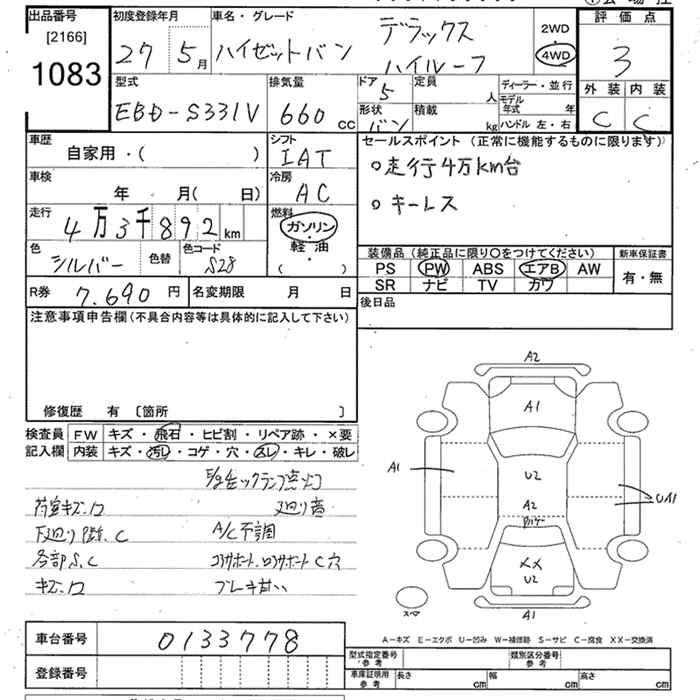 出品番号
[2166]
1083
初度登録年月
27 5月
車名・グレード
ハイゼットバン
デラックス
ハイルーフ
2WD
4WD
評価点
3
外装 内装
C C
型式
EBD-S331V
排気量
660 cc
ドア
5
定員
人
形状
バン
積載
kg
ディーラー・並行
モデル年式 年
ハンドル 左・右
車歴
自家用・( )
シフト
IAT
セールスポイント (正常に機能するものに限ります)
○走行4万km台
○キーレス
車検
年 月( 日)
冷房
AC
走行
4万3千892km
燃料
ガソリン
軽油
( )
色
シルバー
色替
色コード
S28
装備品 (純正品に限り○をつけてください)
新車保証書
PS PW ABS エアB AW
SR ナビ TV カワ
有・無
R券 7.690円
名変期限 月 日
後日品
注意事項申告欄(不具合内容等は具体的に記入して下さい)
修復歴 有 [箇所 ]
検査員記入欄
FW キズ・飛石・ヒビ割・リペア跡・×要
内装 キズ・汚レ・コゲ・穴・スレ・キレ・破レ
荷室キズ.
下廻り C
A/C不調
各部S.C
C穴
キズ.
ブレーキ甘い
A2
A1
A1
U2
A2
UA1
XX
U2
スペア
A1
A－キズ E－エクボ U－凹み W－補修跡 S－サビ C－腐食 XX－交換済
車台番号
0133778
登録番号
型式指定番号
参考
類別区分番号
参考
車庫証明用
参考
長さ cm
幅 cm
高さ cm